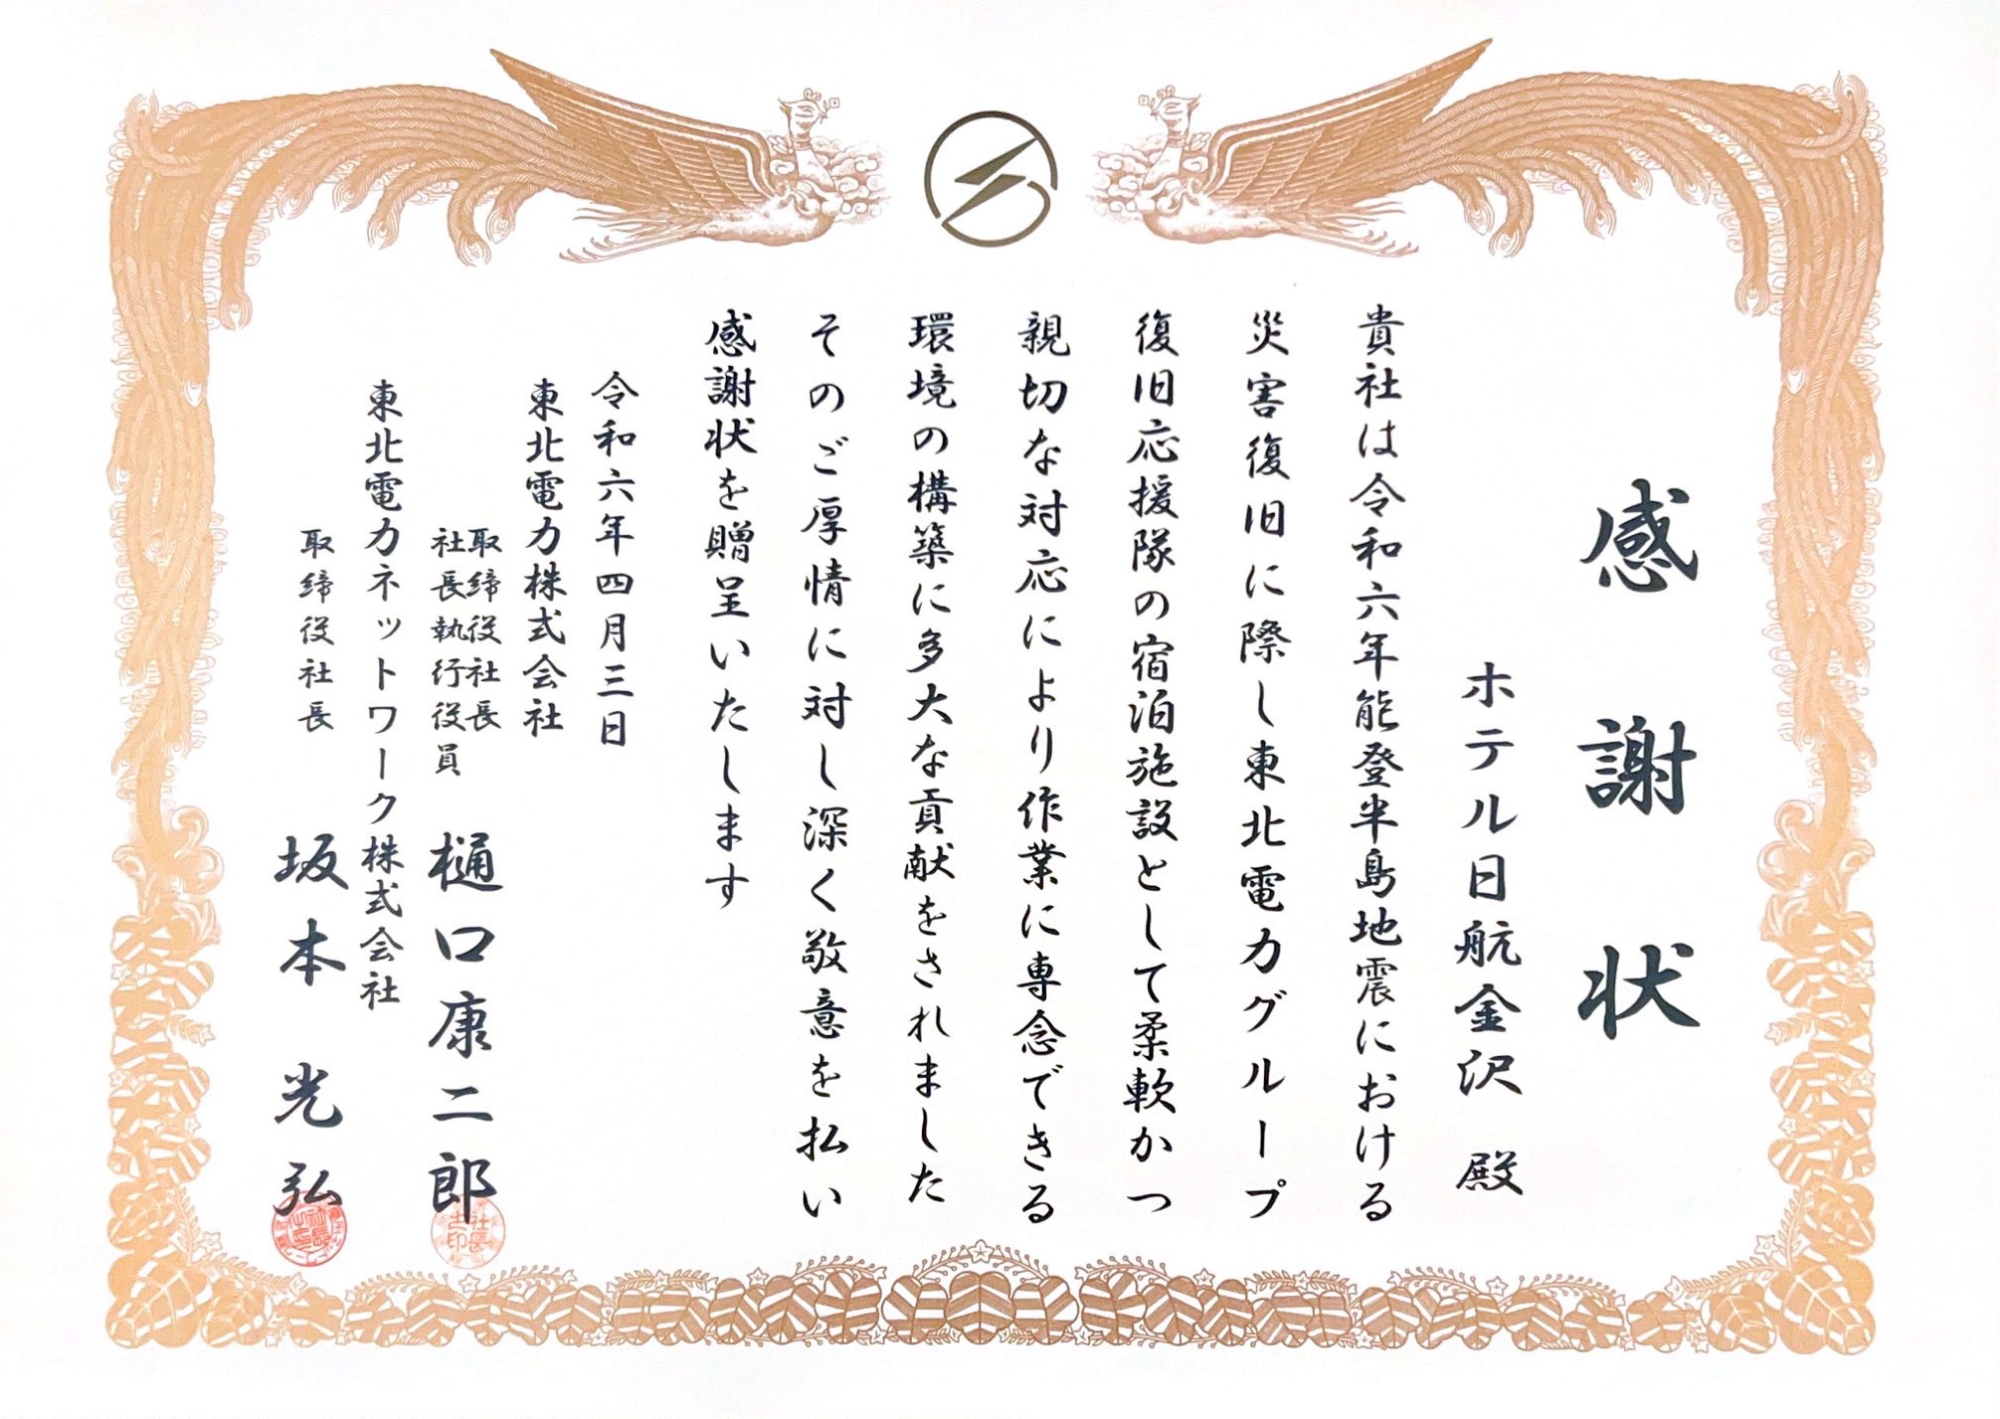 感謝状
ホテル日航金沢 殿
貴社は令和六年能登半島地震における
災害復旧に際し東北電力グループ
復旧応援隊の宿泊施設として柔軟かつ
親切な対応により作業に専念できる
環境の構築に多大な貢献をされました
そのご厚情に対し深く敬意を払い
感謝状を贈呈いたします
令和六年四月三日
東北電力株式会社
取締役社長
社長執行役員
樋口康二郎
東北電力ネットワーク株式会社
取締役社長
坂本光弘